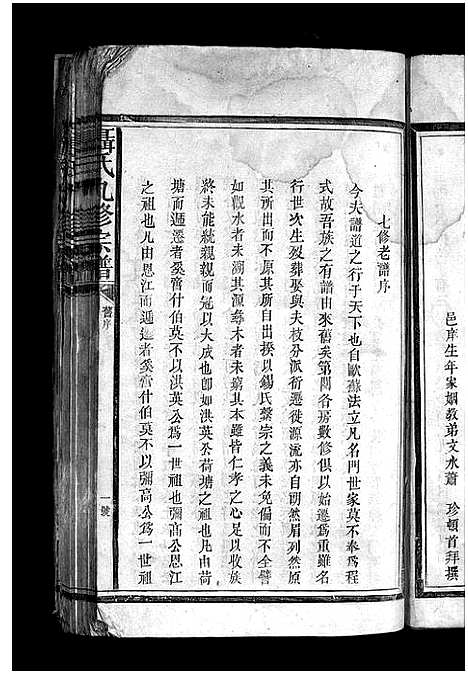 邑庠生年家姻教弟文水蕭　珍頓首拜撰
七修老譜序
今夫譜道之行于天下也自歐蘇法立凡名門世家莫不奉爲程
式故吾族之有譜由來舊矣第閱各房數修俱以始遷爲重雖名
行世次生殁葬娶與夫枝分派衍遷徙源流亦自朗然眉列然原
其所以不原其所自出揆以錫氏鼇宗之義未免偏而不全譬
如觀水者未溯其源尋木者未窮其本雖皆仁孝之心足以收族
終未能統親親而冠以大成也卽如洪英公荷塘之祖也凡由荷
塘而遞遷者奚啻什伯莫不以洪英公爲一世祖也彌高公恩江
之祖也凡由恩江而遞遷者奚啻什伯莫不以彌高公爲一世祖
聶氏九修宗譜
舊序
一號